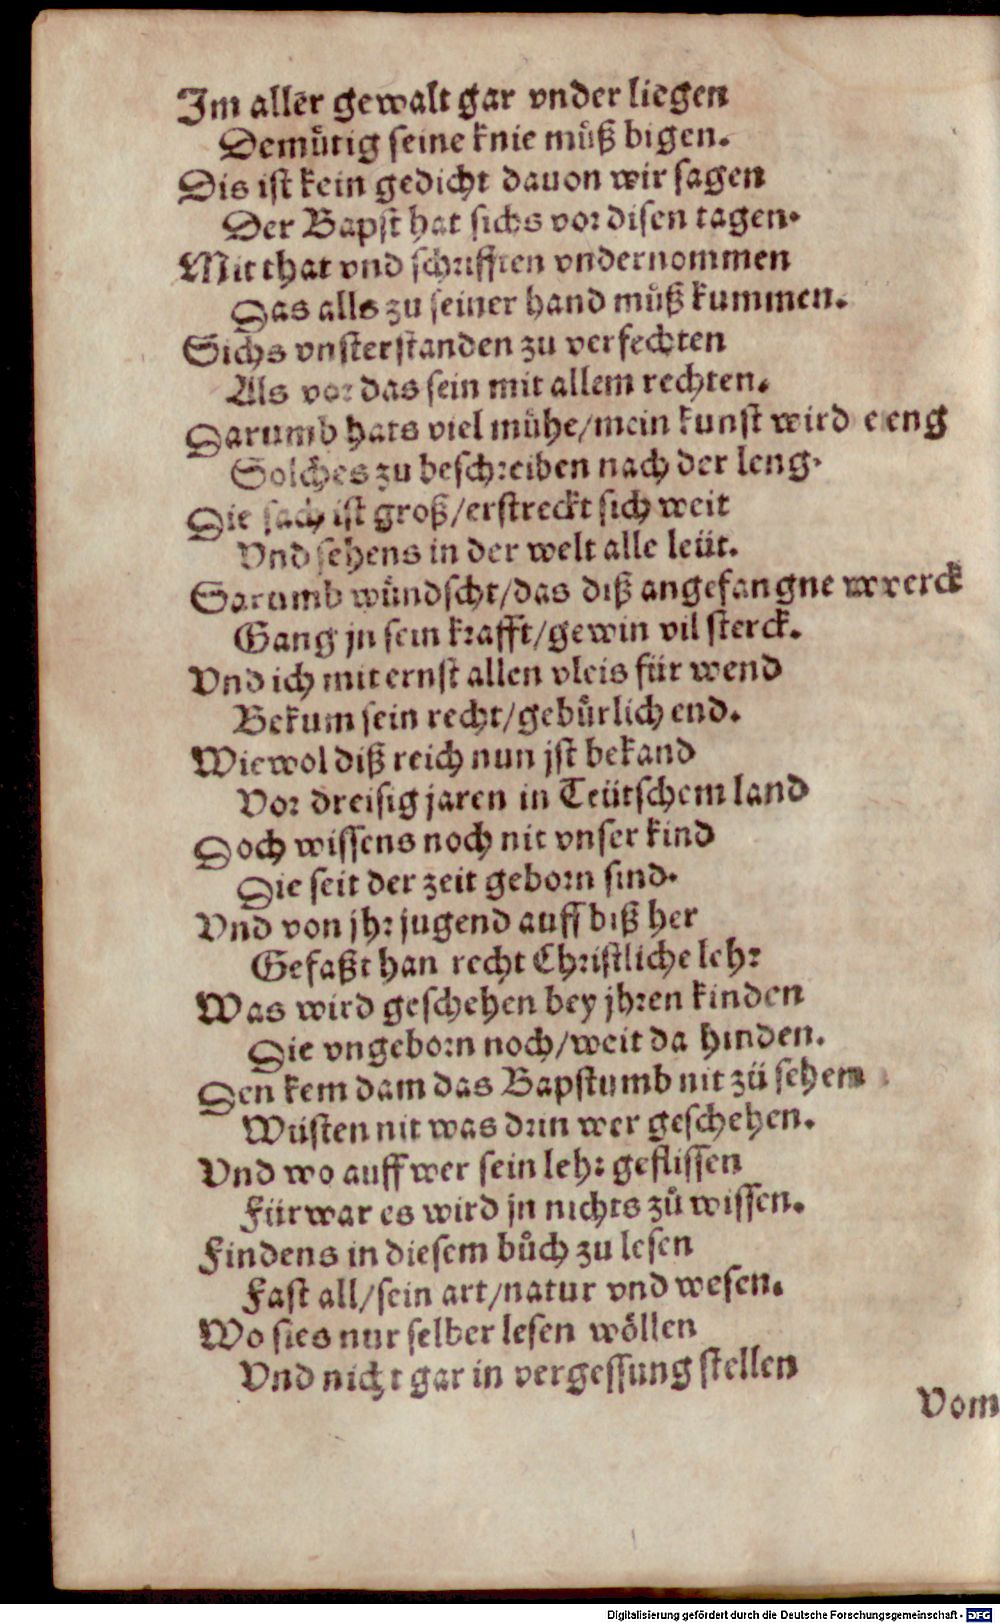 Im allēr gewalt gar vnder liegen
Demuͤtig seine knie muͤß bigen.
Dis ist kein gedicht dauon wir sagen
Der Bapst hat sichs vor disen tagen.
Mit that vnd schrifften vndernommen
Das alls zu seiner hand muͤß kummen.
Sichs vnsterstanden zu verfechten
Als vor das sein mit allem rechten.
Darumb hats viel muͤhe/mein kunst wird eng
Solches zu beschreiben nach der leng.
Die sach ist groß/erstreckt sich weit
Vnd sehens in der welt alle leüt.
Darumb wuͤndscht/das diß angefangne werck
Gang jn sein krafft/gewin vil sterck.
Vnd ich mit ernst allen vleis für wend
Bekum sein recht/gebuͤrlich end.
Wiewol diß reich nun jst bekand
Vor dreisig jaren in Teütschem land
Doch wissens noch nit vnser kind
Die seit der zeit geborn sind.
Vnd von jhr jugend auff biß her
Gefaßt han recht Christliche lehr
Was wird geschehen bey jhren kinden
Die vngeborn noch/weit da hinden.
Den kem dam das Bapstumb nit zü sehen
Wüsten nit was drin wer geschehen.
Vnd wo auff wer sein lehr geflissen
Fürwar es wird jn nichts zuͦ wissen.
Findens in diesem buͦch zu lesen
Fast all/sein art/natur vnd wesen.
Wo sies nur selber lesen woͤllen
Vnd nicht gar in vergessung stellen
Vom
Digitalisierung gefördert durch die Deutsche Forschungsgemeinschaft - DFG